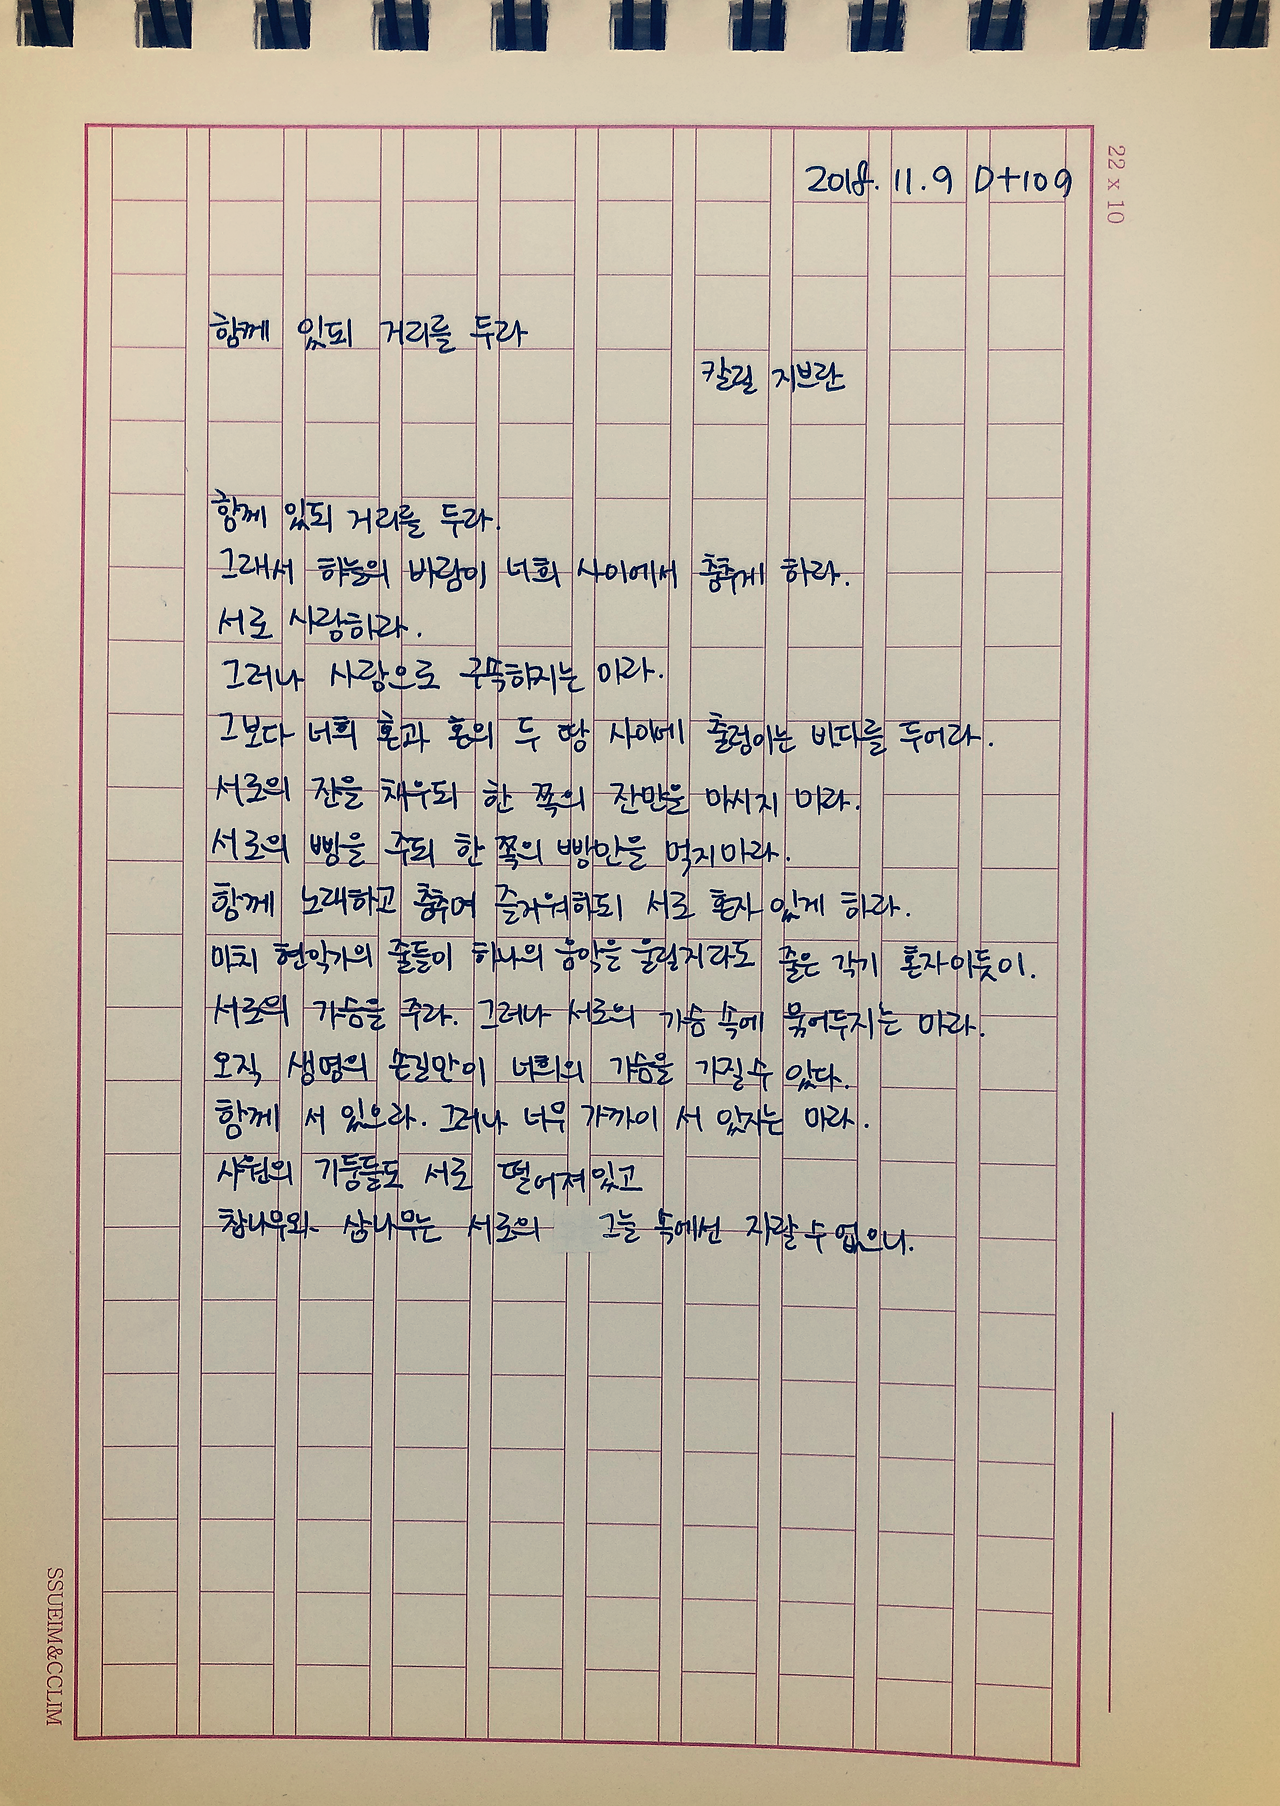 2018. 11. 9 D+109
22 x 10
함께 있되 거리를 두라
칼릴 지브란
함께 있되 거리를 두라.
그래서 하늘의 바람이 너희 사이에서 춤추게 하라.
서로 사랑하라.
그러나 사랑으로 구속하지는 마라.
그보다 너희 혼과 혼의 두 땅 사이에 출렁이는 바다를 두어라.
서로의 잔을 채우되 한 쪽의 잔만을 마시지 마라.
서로의 빵을 주되 한 쪽의 빵만을 먹지마라.
함께 노래하고 춤추며 즐거워하되 서로 혼자 있게 하라.
마치 현악기의 줄들이 하나의 음악을 울릴지라도 줄은 각기 혼자이듯이.
서로의 가슴을 주라. 그러나 서로의 가슴 속에 묶어두지는 마라.
오직 생명의 손길만이 너희의 가슴을 가질수 있다.
함께 서 있으라. 그러나 너무 가까이 서 있지는 마라.
사원의 기둥들도 서로 떨어져있고
참나무와 삼나무는 서로의 그늘 속에선 자랄 수 없으니.
SSUEIM&CCLIM